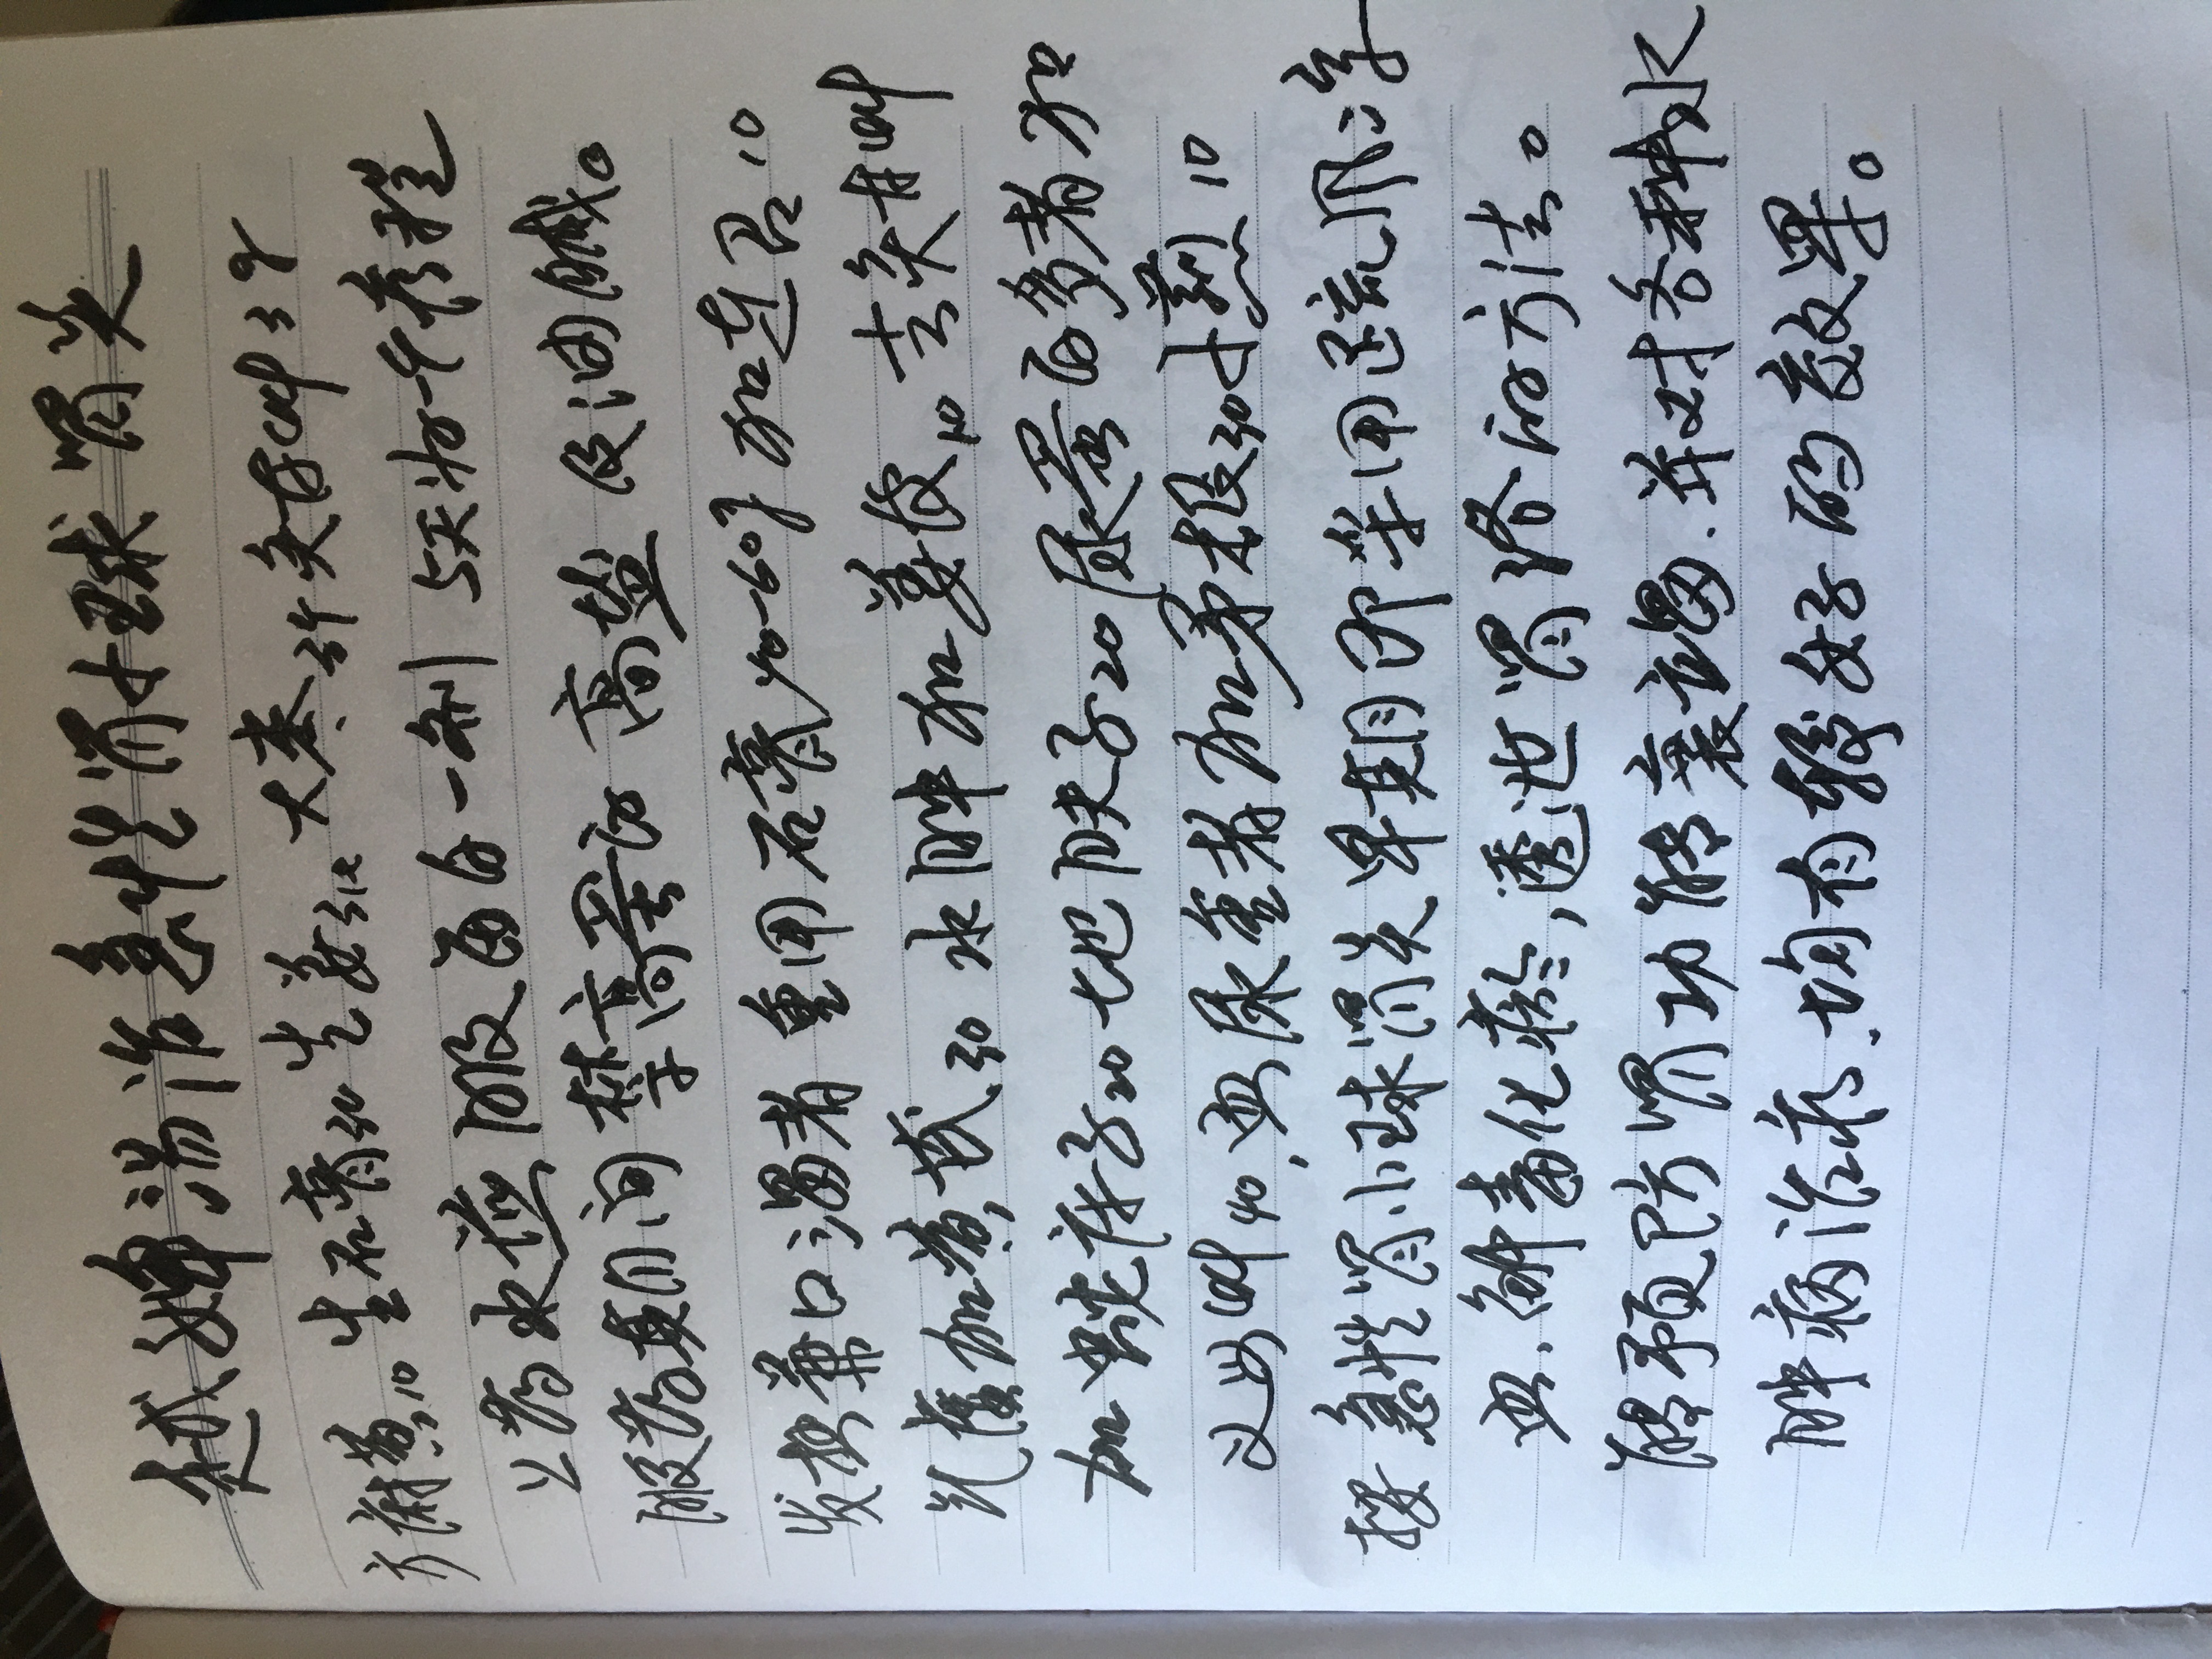 越婢汤治急性肾小球肾炎
方麻黄10 生石膏30 生姜3片 大枣3个 炙甘草3g
上药水煎服每日一剂 5天为一个疗程
服药期间禁高蛋白 高盐 及油腻。
发热兼口渴者 重用石膏40-60g 加连召10
气虚加黄芪30 水肿加姜皮10 去炙甘草
加蛇床子20 地肤子20 尿蛋白多者加
义母草40,血尿重者加茅根30 小蓟10
按急性肾小球肾炎早期即采用疏风凉
血、解毒化瘀,透泄肾络的方法。
能预防肾功能衰竭、并对各种水
肿病治疗、均有较好的效果。